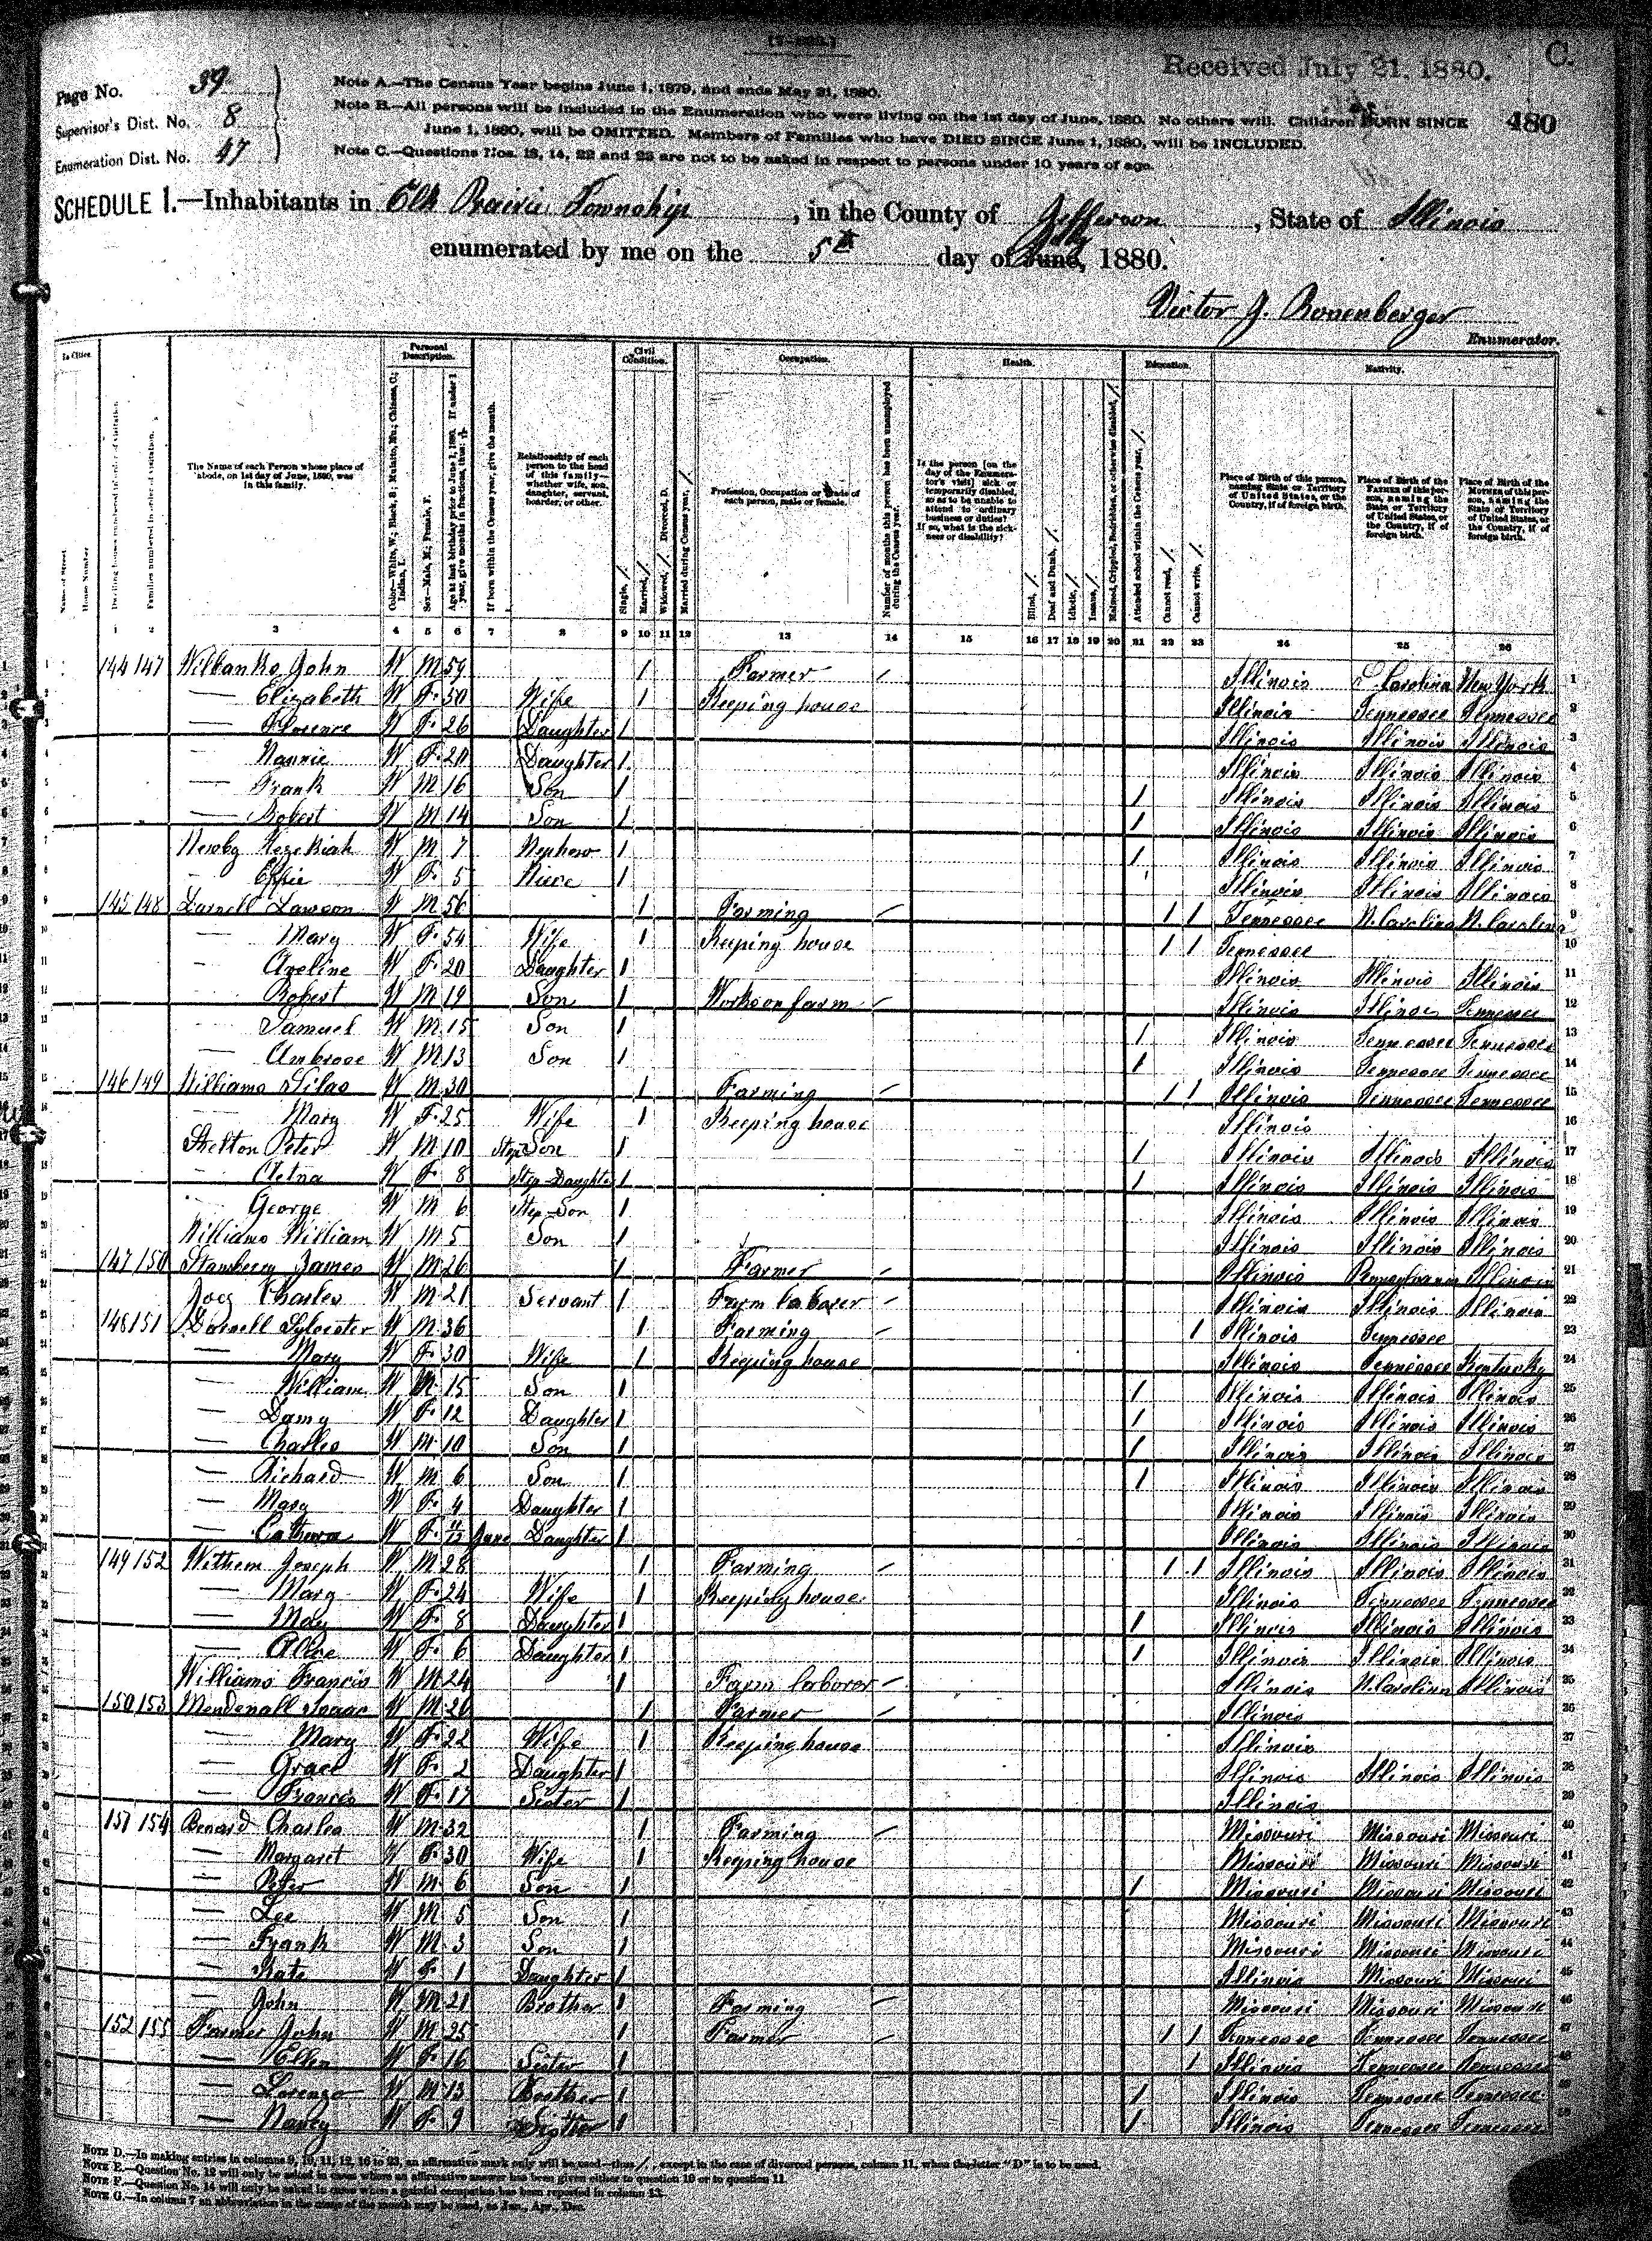 Received July 21, 1880.
C.
Page No. 39
Supervisor's Dist. No. 8
Enumeration Dist. No. 47
480
Note A.—The Census Year begins June 1, 1879, and ends May 31, 1880.
Note B.—All persons will be included in the Enumeration who were living on the 1st day of June, 1880. No others will. Children BORN SINCE
June 1, 1880, will be OMITTED. Members of Families who have DIED SINCE June 1, 1880, will be INCLUDED.
Note C.—Questions Nos. 13, 14, 22 and 23 are not to be asked in respect to persons under 10 years of age.
SCHEDULE 1.—Inhabitants in Elk Prairie Township, in the County of Jefferson, State of Illinois
enumerated by me on the 5th day of June, July 1880.
Victor J.
Enumerator.
In Cities. Personal Description. Civil Condition. Occupation. Health. Education. Nativity.
The Name of each Person whose place of abode, on 1st day of June, 1880, was in this family.
Relationship of each person to the head of this family—whether wife, son, daughter, servant, boarder, or other.
Profession, Occupation or Trade of each person, male or female.
1 2 3 4 5 6 7 8 9 10 11 12 13 14 15 16 17 18 19 20 21 22 23 24 25 26
1 144 147 Wilbanks John W M 59 1 Farmer Illinois S Carolina New York 1
2 — Elizabeth W F 50 Wife 1 Keeping house Illinois Tennessee Tennessee 2
3 — Florence W F 26 Daughter 1 Illinois Illinois Illinois 3
4 — Nannie W F 20 Daughter 1 Illinois Illinois Illinois 4
5 — Frank W M 16 Son 1 1 Illinois Illinois Illinois 5
6 — Robert W M 14 Son 1 1 Illinois Illinois Illinois 6
7 Newby Hezekiah W M 7 Nephew 1 1 Illinois Illinois Illinois 7
8 — Effie W F 5 Niece 1 Illinois Illinois Illinois 8
9 145 148 Darnell Lawson W M 56 1 Farming 1 1 Tennessee N. Carolina N. Carolina 9
10 — Mary W F 54 Wife 1 Keeping house 1 1 Tennessee 10
11 — Azeline W F 20 Daughter 1 Illinois Illinois Illinois 11
12 — Robert W M 19 Son 1 Works on farm Illinois Illinois Tennessee 12
13 — Samuel W M 15 Son 1 1 Illinois Tennessee Tennessee 13
14 — Ambrose W M 13 Son 1 1 Illinois Tennessee Tennessee 14
15 146 149 Williams Silas W M 30 1 Farming 1 1 Illinois Tennessee Tennessee 15
16 — Mary W F 25 Wife 1 Keeping house Illinois 16
17 Shelton Peter W M 10 Step Son 1 1 Illinois Illinois Illinois 17
18 — W F 8 Step-Daughter 1 1 Illinois Illinois Illinois 18
19 — George W M 6 Step-Son 1 Illinois Illinois Illinois 19
20 Williams William W M 5 Son 1 Illinois Illinois Illinois 20
21 147 150 James W M 26 1 Farmer Illinois Pennsylvania Illinois 21
22 Charles W M 21 Servant 1 Farm laborer Illinois Illinois Illinois 22
23 148 151 Darnell Sylvester W M 36 1 Farming 1 Illinois Tennessee 23
24 — Mary W F 30 Wife 1 Keeping house Illinois Tennessee Kentucky 24
25 — William W M 15 Son 1 1 Illinois Illinois Illinois 25
26 — W F 12 Daughter 1 1 Illinois Illinois Illinois 26
27 — Charles W M 10 Son 1 1 Illinois Illinois Illinois 27
28 — Richard W M 6 Son 1 1 Illinois Illinois Illinois 28
29 — Mary W F 4 Daughter 1 Illinois Illinois Illinois 29
30 — W F 11/12 June Daughter 1 Illinois Illinois Illinois 30
31 149 152 Joseph W M 28 1 Farming 1 1 Illinois Illinois Illinois 31
32 — Mary W F 24 Wife 1 Keeping house Illinois Tennessee Tennessee 32
33 — May W F 8 Daughter 1 1 Illinois Illinois Illinois 33
34 — Alice W F 6 Daughter 1 1 Illinois Illinois Illinois 34
35 Williams Francis W M 24 1 Farm laborer Illinois N. Carolina Illinois 35
36 150 153 Mendenall Isaac W M 26 1 Farmer Illinois 36
37 — Mary W F 22 Wife 1 Keeping house Illinois 37
38 — Grace W F 2 Daughter 1 Illinois Illinois Illinois 38
39 — Francis W F 17 Sister 1 Illinois 39
40 151 154 Charles W M 32 1 Farming Missouri Missouri Missouri 40
41 — Margaret W F 30 Wife 1 Keeping house Missouri Missouri Missouri 41
42 — Peter W M 6 Son 1 1 Missouri Missouri Missouri 42
43 — Lee W M 5 Son 1 Missouri Missouri Missouri 43
44 — Frank W M 3 Son 1 Missouri Missouri Missouri 44
45 — Kate W F 1 Daughter 1 Illinois Missouri Missouri 45
46 — John W M 21 Brother 1 Farming Missouri Missouri Missouri 46
47 152 155 Farmer John W M 25 1 Farmer 1 1 Tennessee Tennessee Tennessee 47
48 — Ellen W F 16 Sister 1 1 Illinois Tennessee Tennessee 48
49 — Lorenzo W M 13 Brother 1 1 Illinois Tennessee Tennessee 49
50 — Nancy W F 9 Sister 1 1 Illinois Tennessee Tennessee 50
NOTE D.—In making entries in columns 9, 10, 11, 12, 16 to 23, an affirmative mark only will be used—thus /, except in the case of divorced persons, column 11, when the letter "D" is to be used.
NOTE E.—Question No. 12 will only be asked in cases where an affirmative answer has been given either to question 10 or to question 11.
NOTE F.—Question No. 14 will only be asked in cases when a gainful occupation has been reported in column 13.
NOTE G.—In column 7 an abbreviation in the name of the month may be used, as Jan., Apr., Dec.